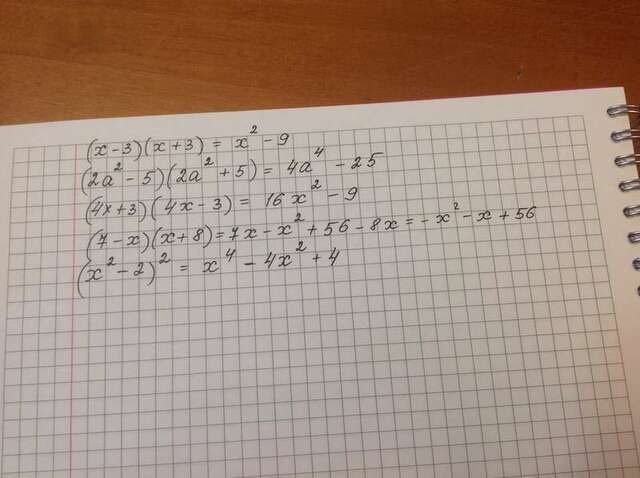 (x-3)(x+3) = x² - 9
(2a² - 5)(2a² + 5) = 4a⁴ - 25
(4x+3)(4x-3) = 16x² - 9
(7-x)(x+8) = 7x - x² + 56 - 8x = -x² - x + 56
(x² - 2)² = x⁴ - 4x² + 4